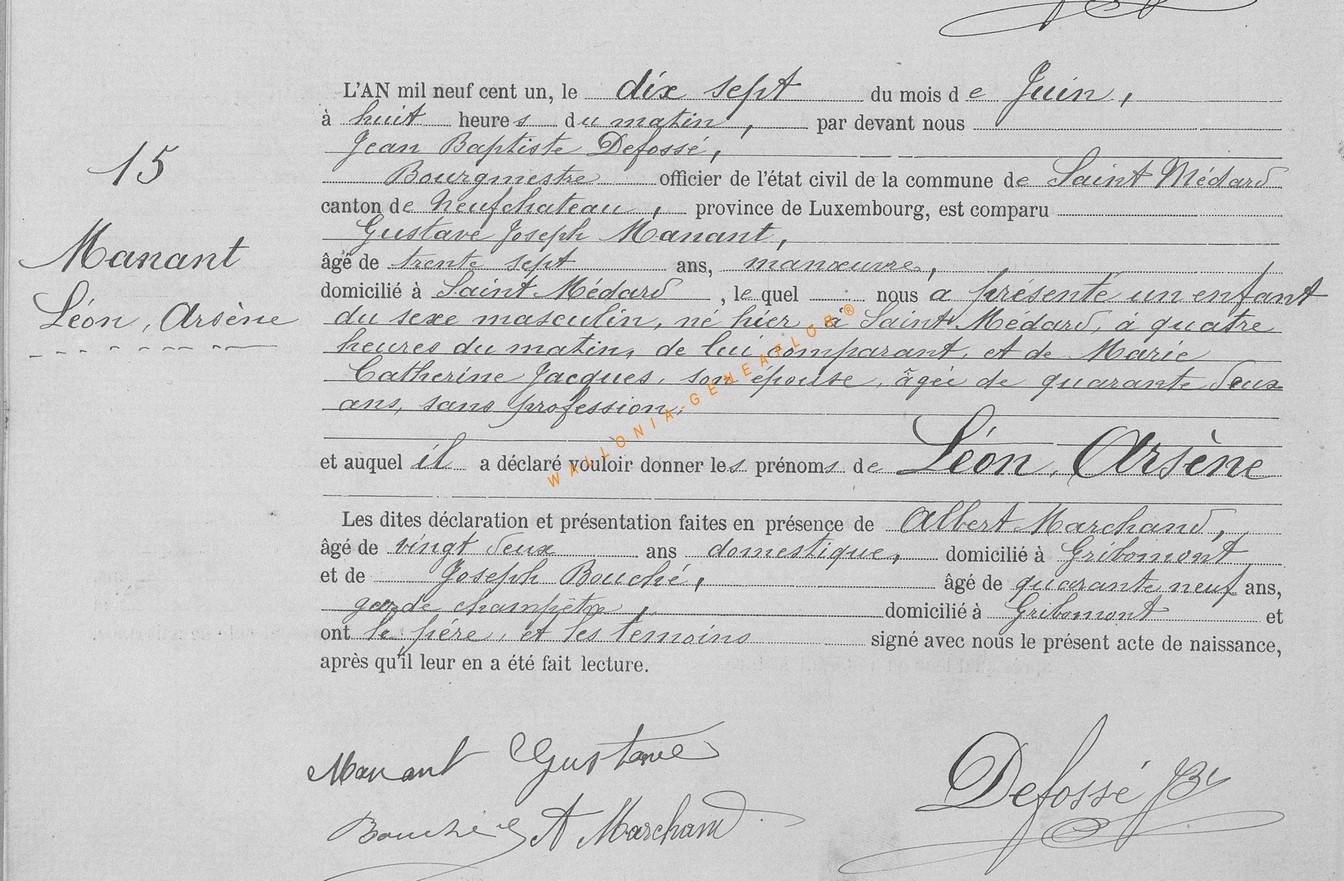 15
Manant
Léon, Arsène
L'AN mil neuf cent un, le dix sept du mois de Juin,
à huit heures du matin, par devant nous
Jean Baptiste Defossé,
Bourgmestre officier de l'état civil de la commune de Saint Médard
canton de Neufchateau, province de Luxembourg, est comparu
Gustave Joseph Manant,
âgé de trente sept ans, manœuvre,
domicilié à Saint Médard, lequel nous a présenté un enfant
du sexe masculin, né hier, à Saint Médard, à quatre
heures du matin, de lui comparant, et de Marie
Catherine Jacques, son épouse, âgée de quarante deux
ans, sans profession,
et auquel il a déclaré vouloir donner les prénoms de Léon, Arsène
Les dites déclaration et présentation faites en présence de Albert Marchand,
âgé de vingt deux ans domestique, domicilié à Gribomont
et de Joseph Bouché, âgé de quarante neuf ans,
garde champêtre, domicilié à Gribomont et
ont le père, et les témoins signé avec nous le présent acte de naissance,
après qu'il leur en a été fait lecture.
Manant Gustave
Defossé JB
Bouché J A Marchand
WALLONIA-GENEAFLOR®